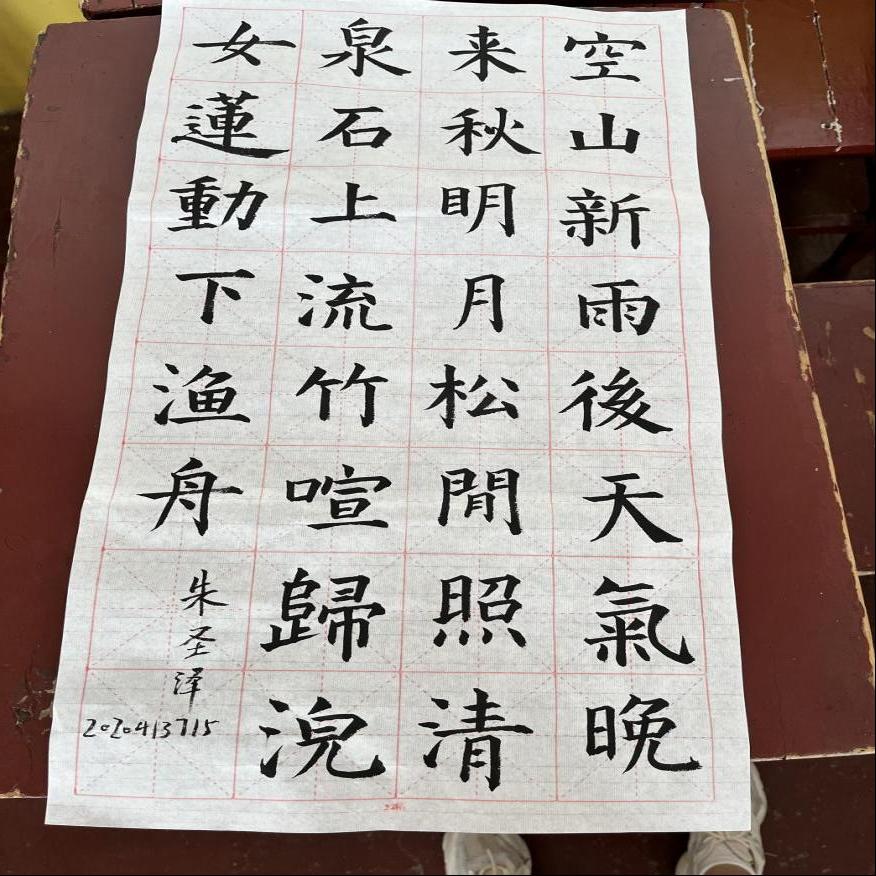 空山新雨後天氣晚
来秋明月松間照清
泉石上流竹喧歸浣
女蓮動下渔舟
朱圣泽
2020413715